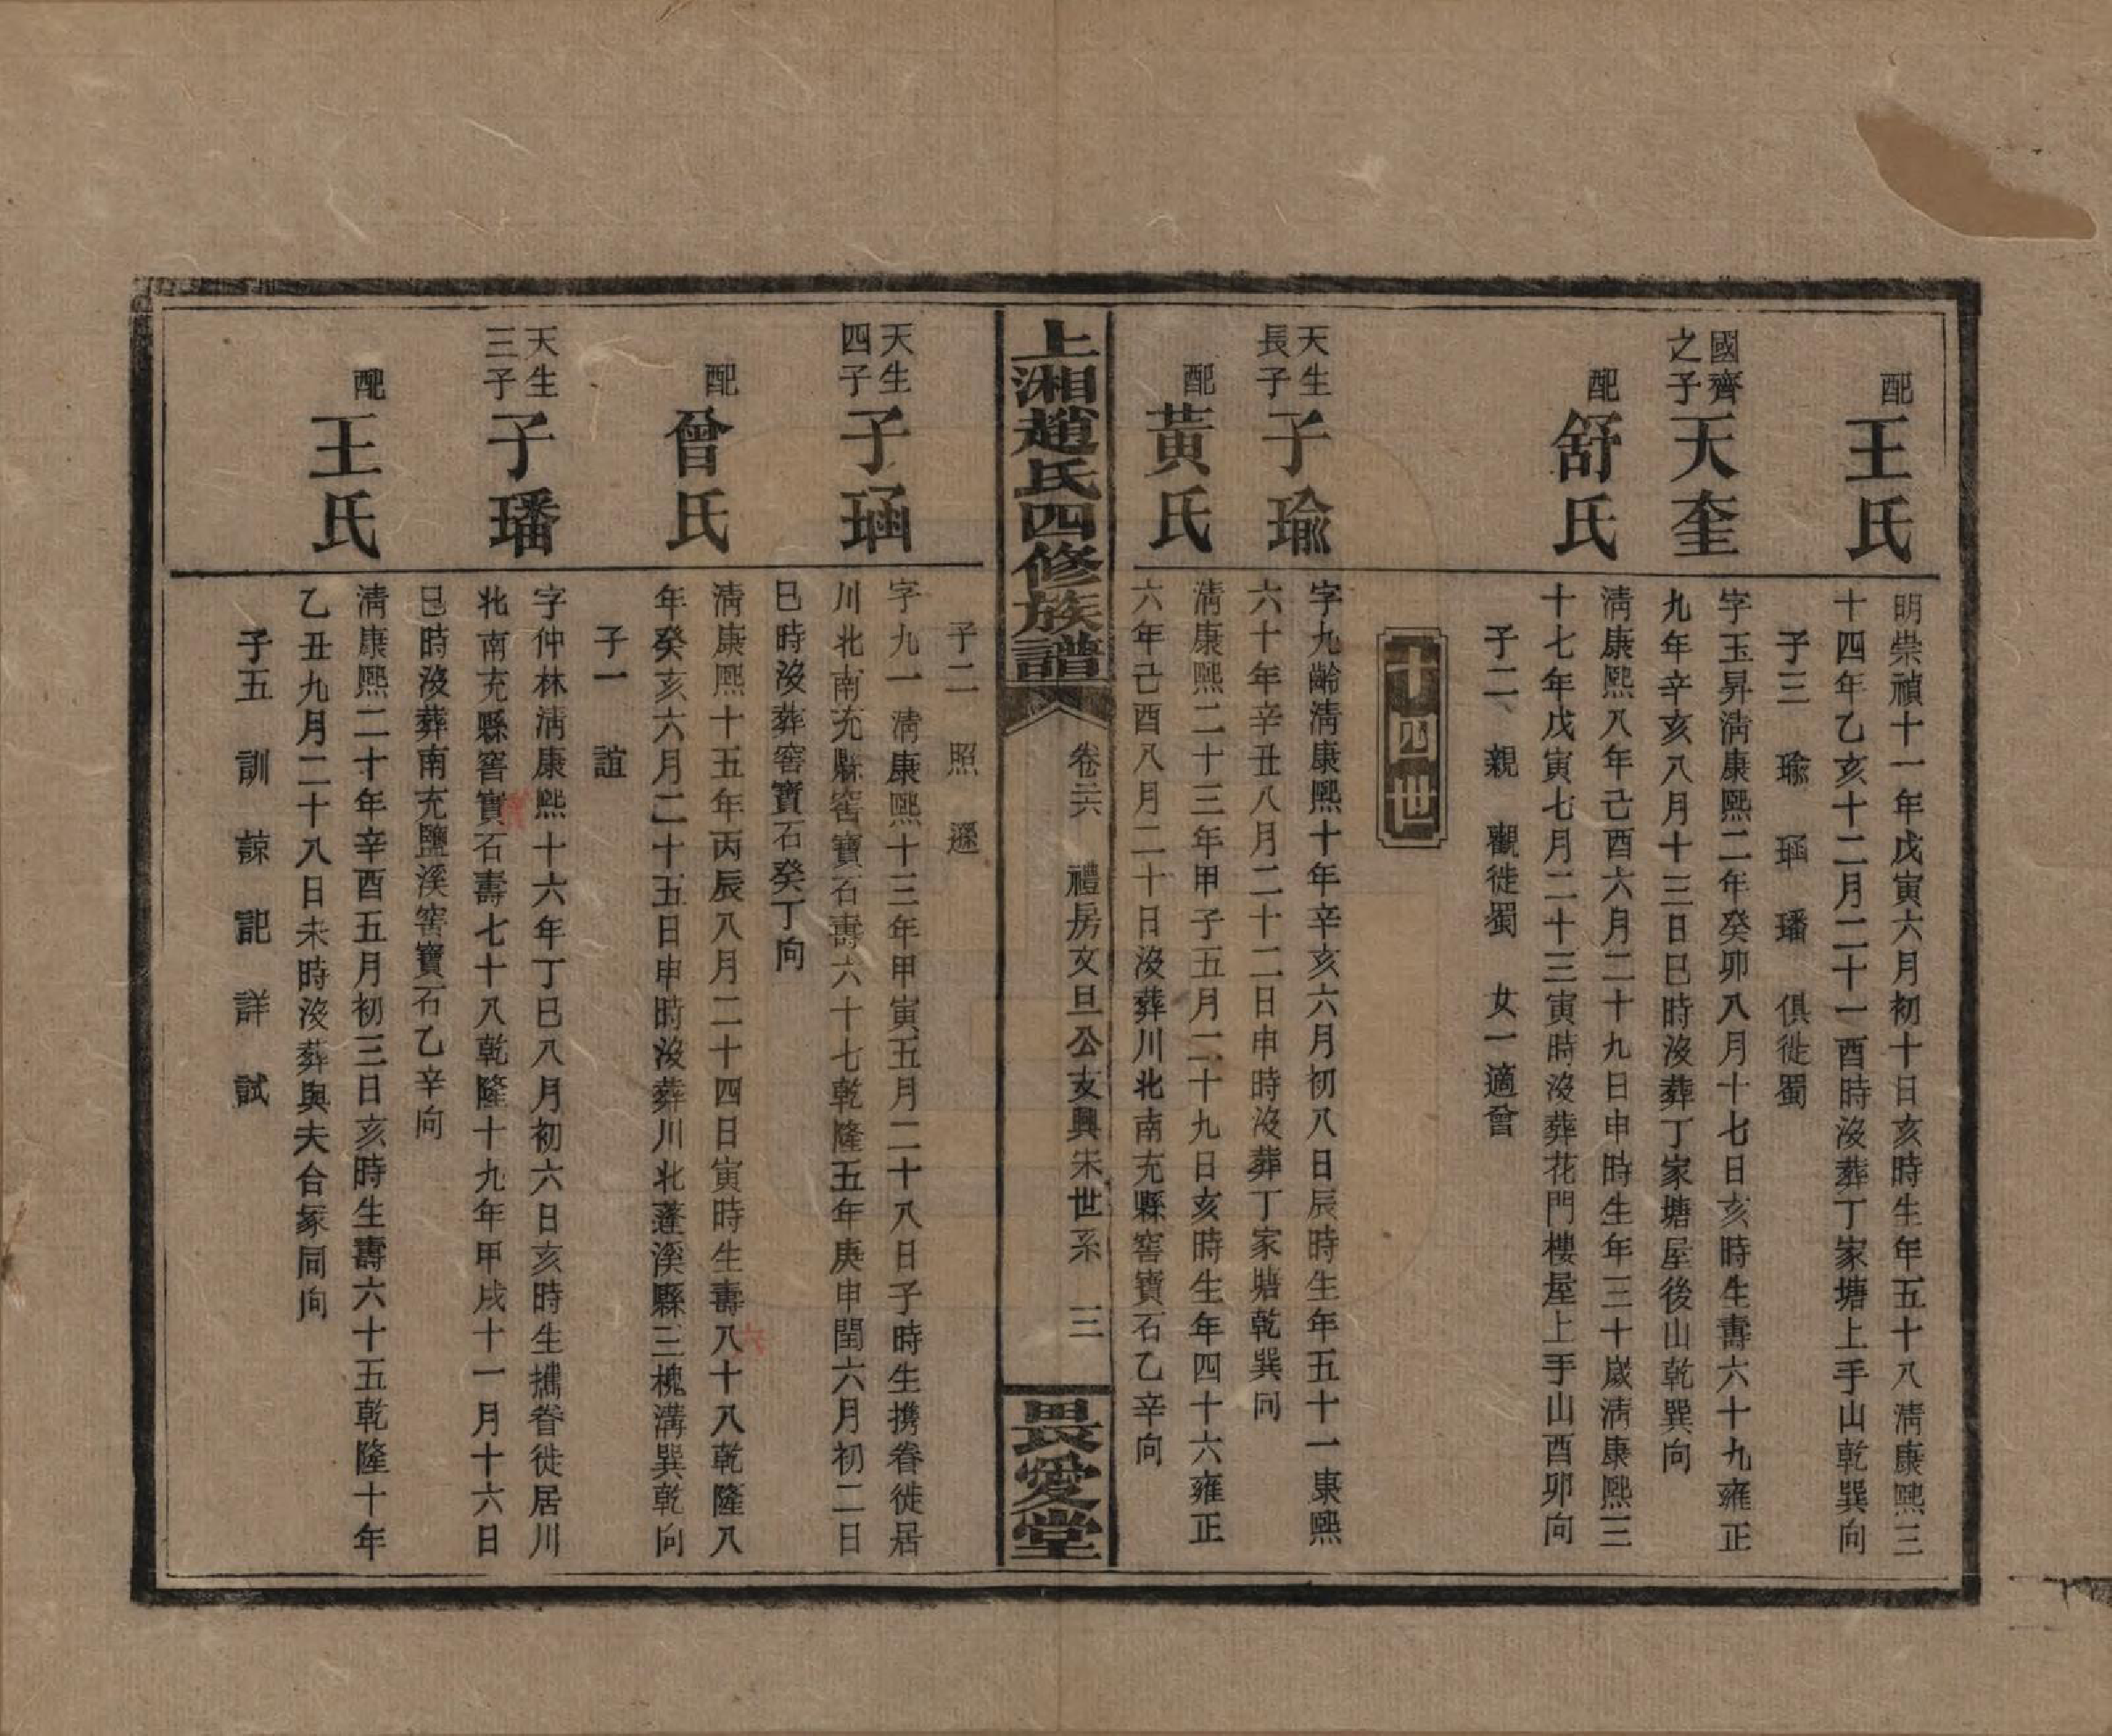 配
王氏
明崇禎十一年戊寅六月初十日亥時生年五十八清康熙三
十四年乙亥十二月二十一酉時沒葬丁家塘上手山乾巽向
子三　瑜　㻏　璠　俱徙蜀
國齊
之子
天奎
字玉昇清康熙二年癸卯八月十七日亥時生壽六十九雍正
九年辛亥八月十三日巳時沒葬丁家塘屋後山乾巽向
配
舒氏
清康熙八年己酉六月二十九日申時生年三十歲清康熙三
十七年戊寅七月二十三寅時沒葬花門樓屋上手山酉卯向
子二　親　觀徙蜀　女一適曾
十四世
天生
長子
子瑜
字九齡清康熙十年辛亥六月初八日辰時生年五十一康熙
六十年辛丑八月二十二日申時沒葬丁家塘乾巽向
配
黃氏
清康熙二十三年甲子五月二十九日亥時生年四十六雍正
六年己酉八月二十日沒葬川北南充縣窖寶石乙辛向
上湘趙氏四修族譜
卷六　禮房文旦公友興宋世系　三
畏愛堂
子二　照　遜
天生
四子
子㻏
字九一清康熙十三年甲寅五月二十八日子時生携眷徙居
川北南充縣窖寶石壽六十七乾隆五年庚申閏六月初二日
巳時沒葬窖寶石癸丁向
配
曾氏
清康熙十五年丙辰八月二十四日寅時生壽八十八乾隆八
六
年癸亥六月二十五日申時沒葬川北蓬溪縣三槐溝巽乾向
子一　誼
天生
三子
子璠
字仲林清康熙十六年丁巳八月初六日亥時生攜眷徙居川
北南充縣窖寶石壽七十八乾隆十九年甲戌十一月十六日
巳時沒葬南充鹽溪窖寶石乙辛向
配
王氏
清康熙二十年辛酉五月初三日亥時生壽六十五乾隆十年
乙丑九月二十八日未時沒葬與夫合冢同向
子五　訓　諒　記　詳　試